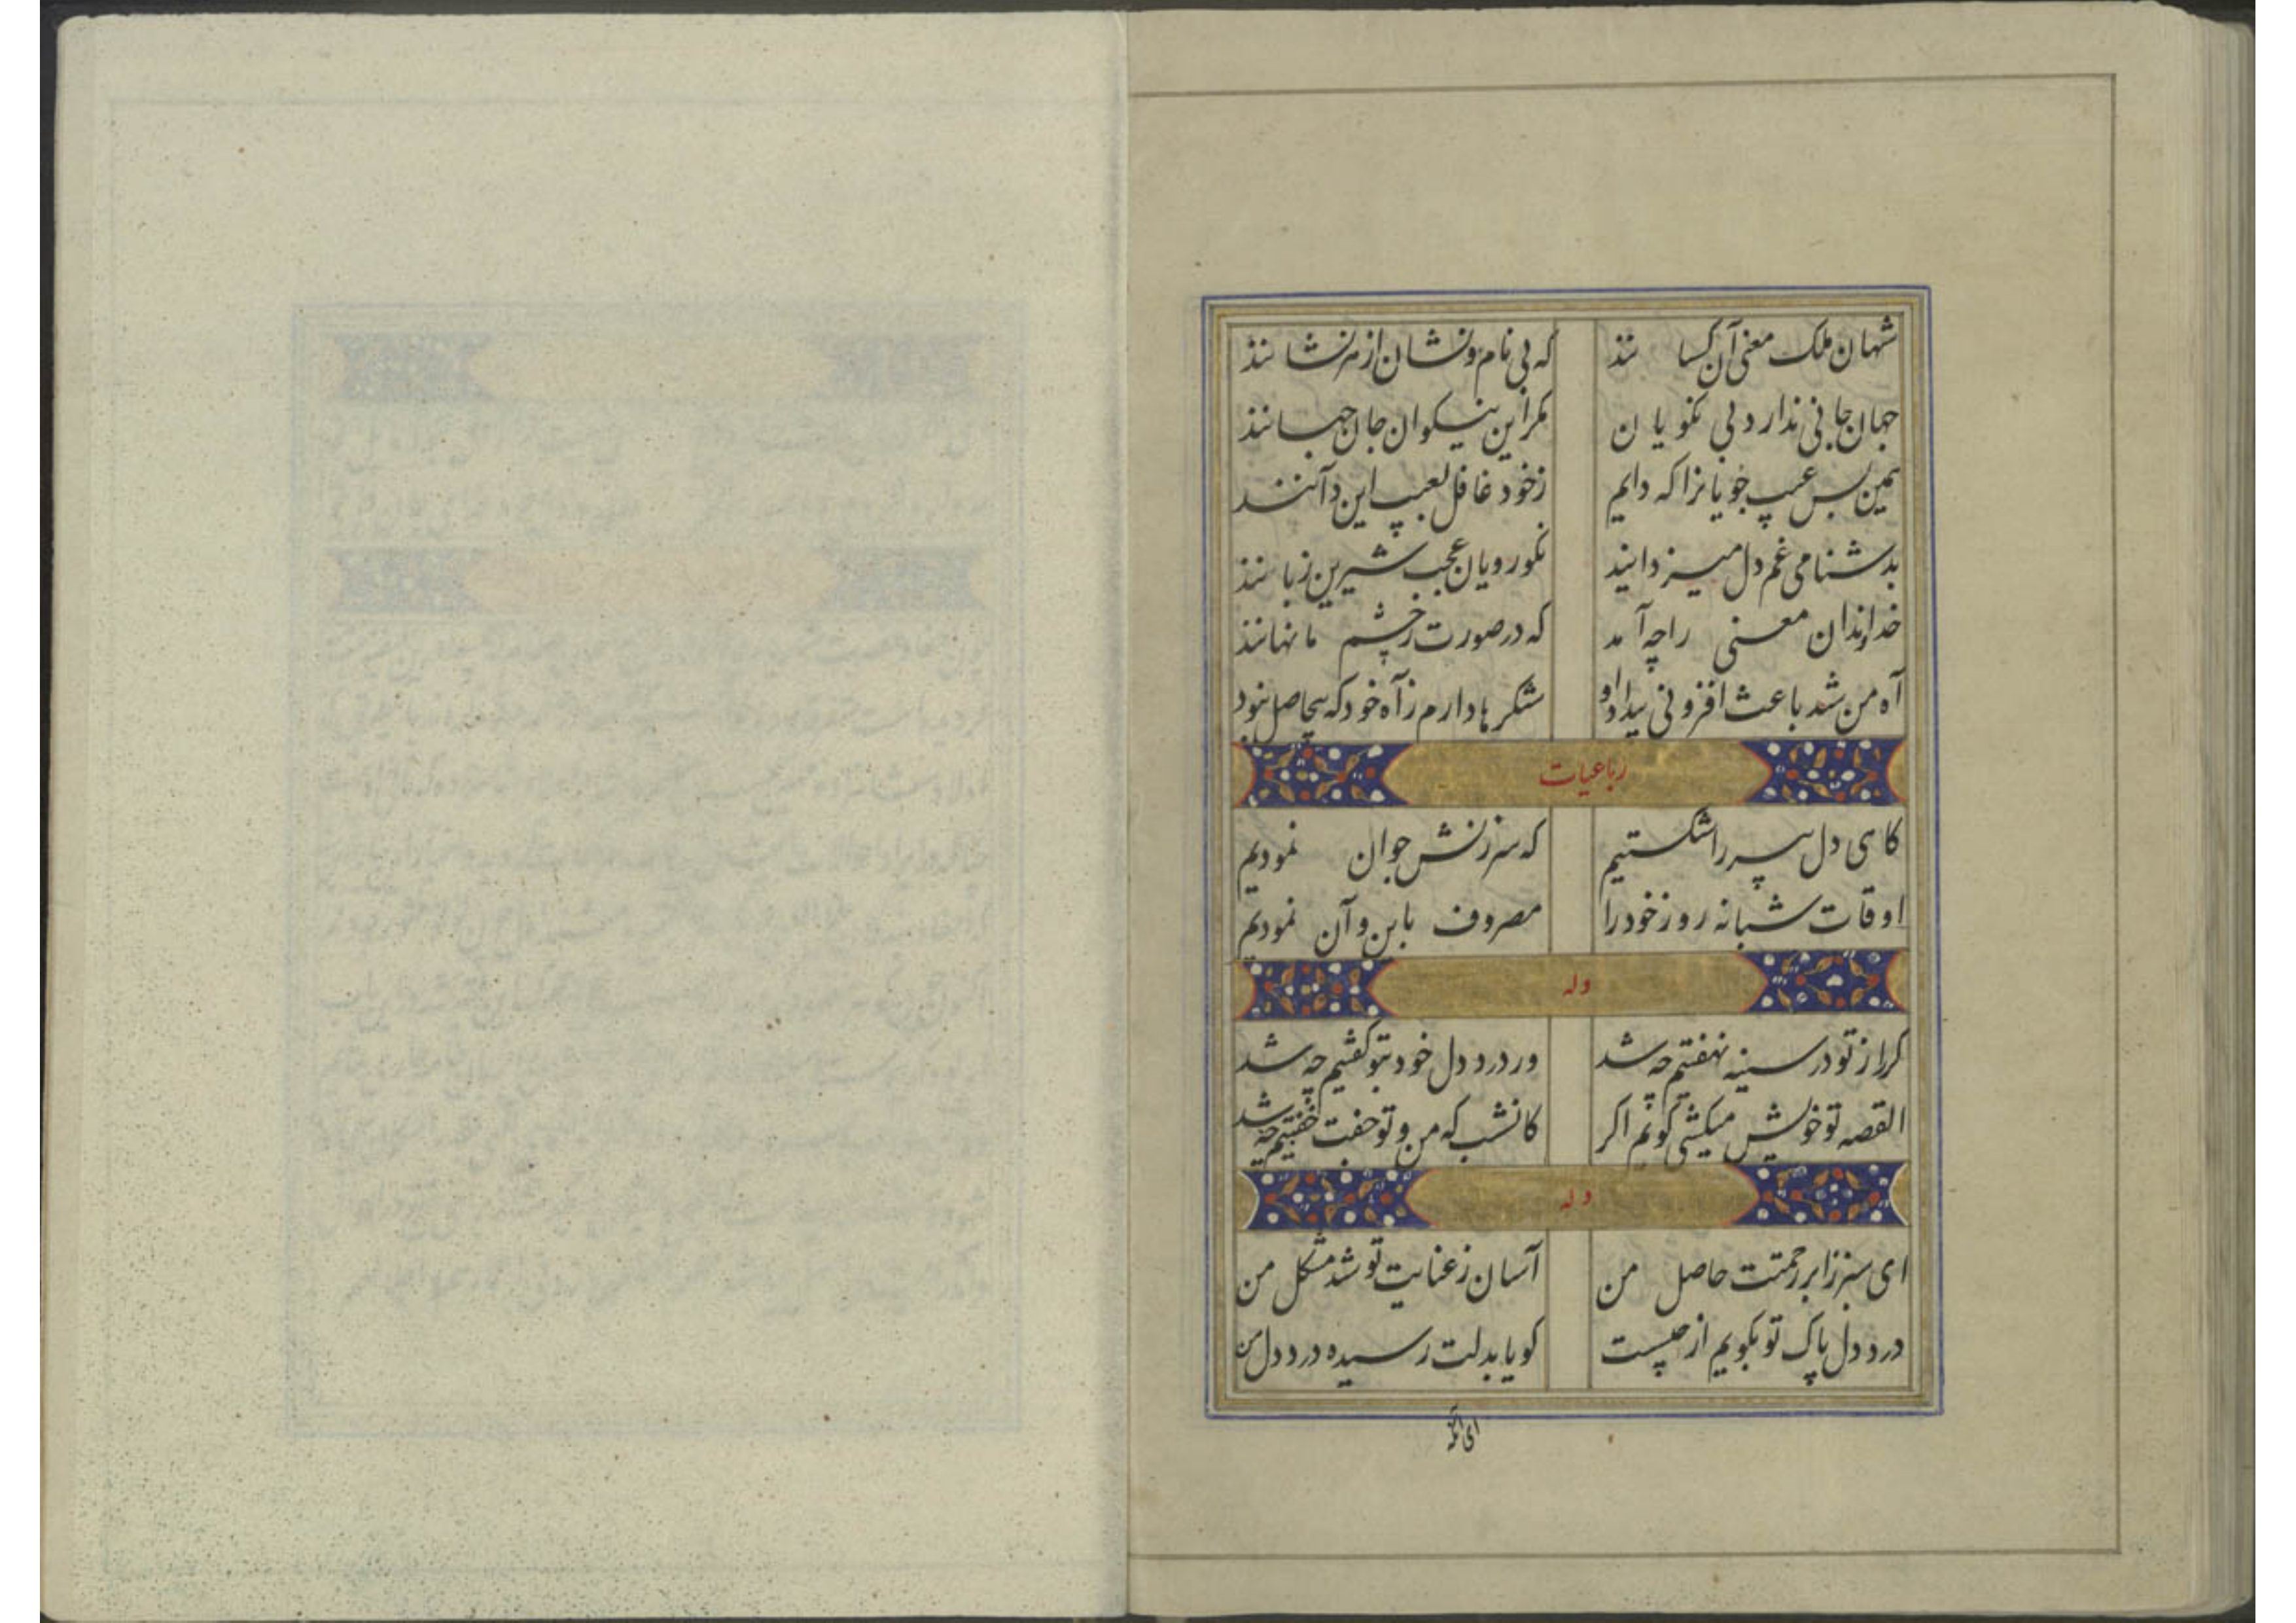 شهان ملک معنی آن کسانند که بی نام و نشان از هر نشانند
جهان جانی ندارد بی نکویان مکر این نیکوان جان جهانند
همین بس عیب جویانرا که دایم ز خود غافل بعیب این و آنند
بدشنامی غم دل میزدایند نکورویان عجب شیرین زبانند
خداوندان معنی را چه آمد که در صورت ز چشم ما نهانند
آه من شد باعث افزونی بیداد او شکرها دارم ز آه خود که بیحاصل نبود
رباعیات
کاهی دل پیر را شکستیم که سرزنش جوان نمودیم
اوقات شبانه روز خود را مصروف باین و آن نمودیم
وله
کر راز تو در سینه نهفتیم چه شد ور درد دل خود بتو کفتیم چه شد
القصه تو خویش میکشی کویم اکر کانشب که من و تو جفت خفتیم چه شد
وله
ای سبز ز ابر رحمتت حاصل من آسان ز عنایت تو شد مشکل من
درد دل پاک تو بکویم از چیست کویا بدلت رسیده درد دل من